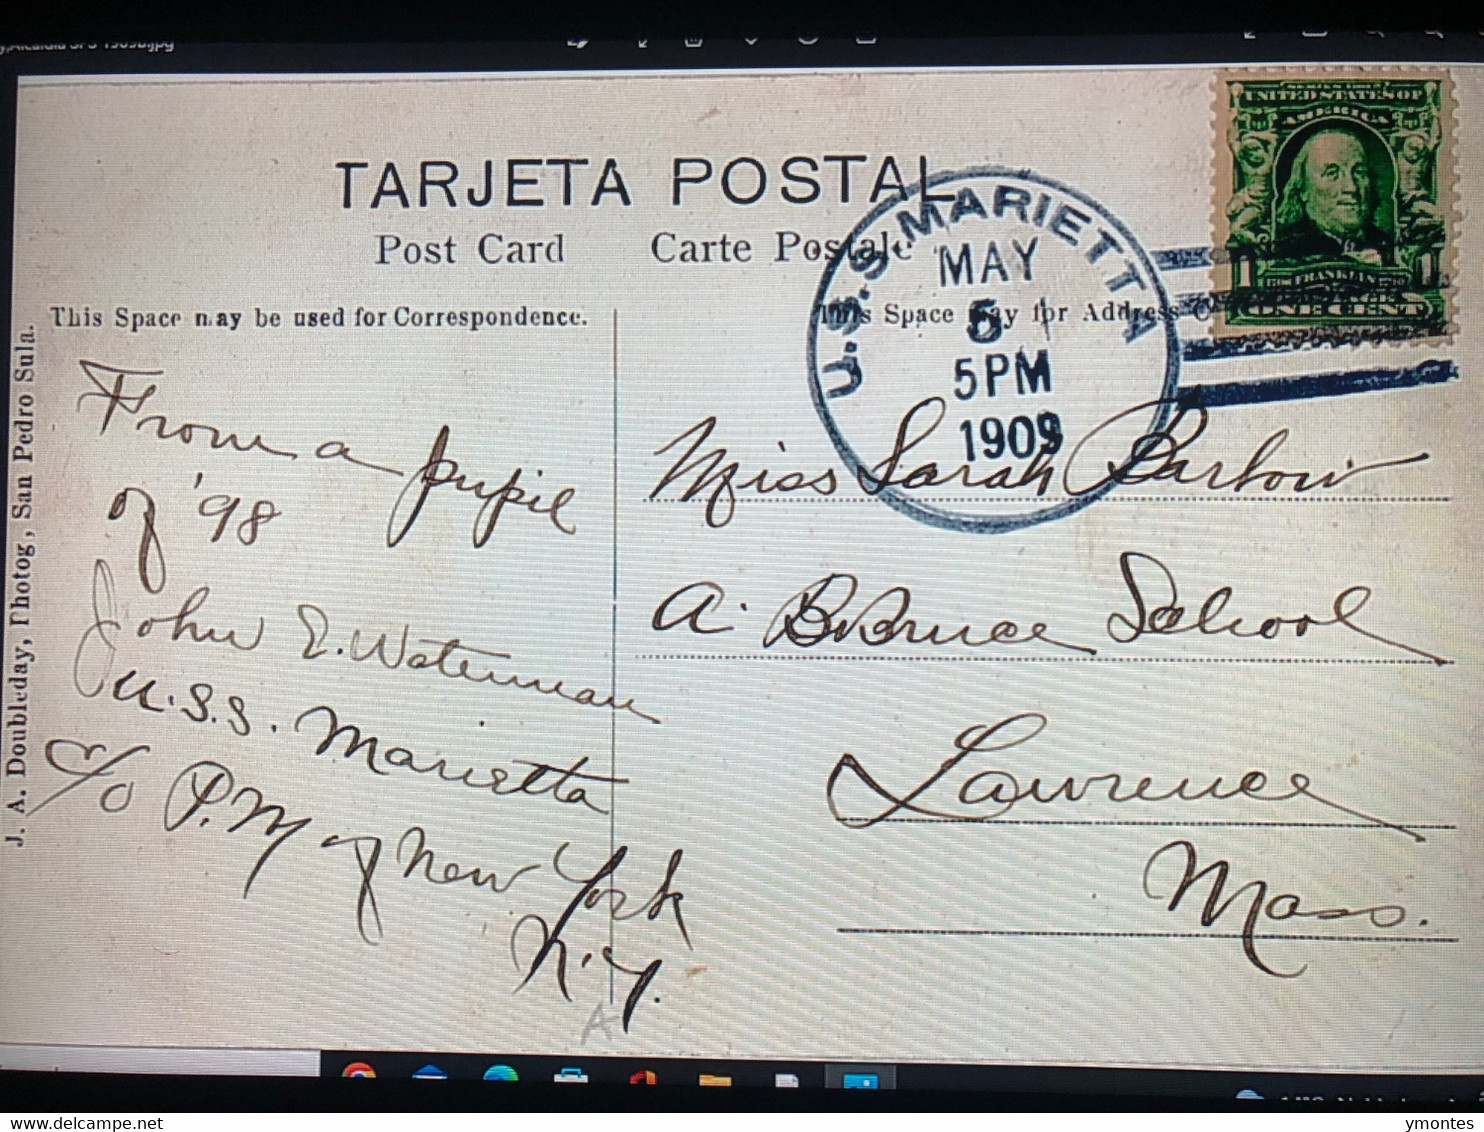 TARJETA POSTAL
Post Card Carte Postale
This Space may be used for Correspondence.
This Space may for Address
J. A. Doubleday, Photog, San Pedro Sula.
U.S.S. MARIETTA
MAY
5
5PM
1909
UNITED STATES OF
AMERICA
FRANKLIN
1 1
ONE CENT
From a pupil
of '98
John E. Waterman
U.S.S. Marietta
c/o P.M of New York
N.Y.
A
Miss Sarah Barlow
A. B. Bruce School
Lawrence
Mass.
delcampe.net
ymontes